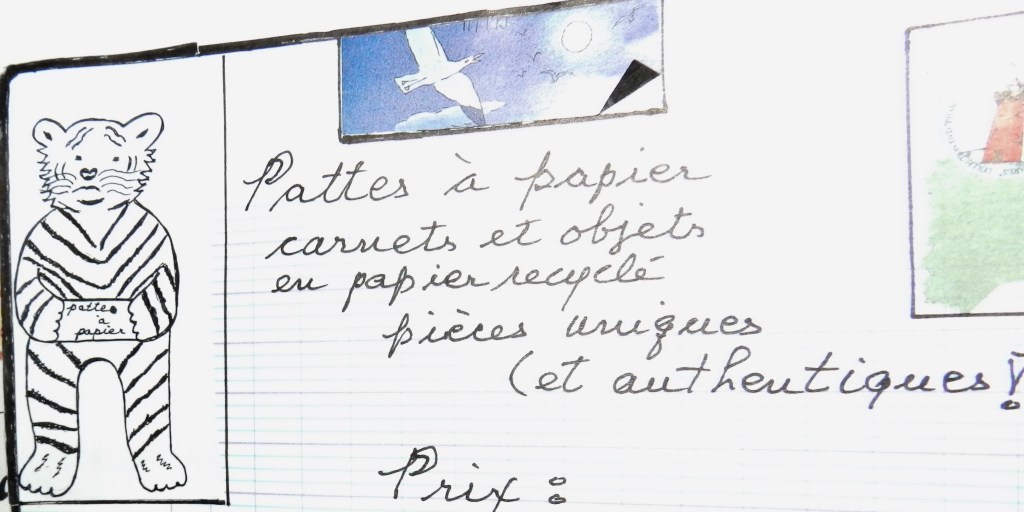 Pattes à papier
carnets et objets
en papier recyclé
pièces uniques
(et authentiques !
Prix :
pattes
à
papier